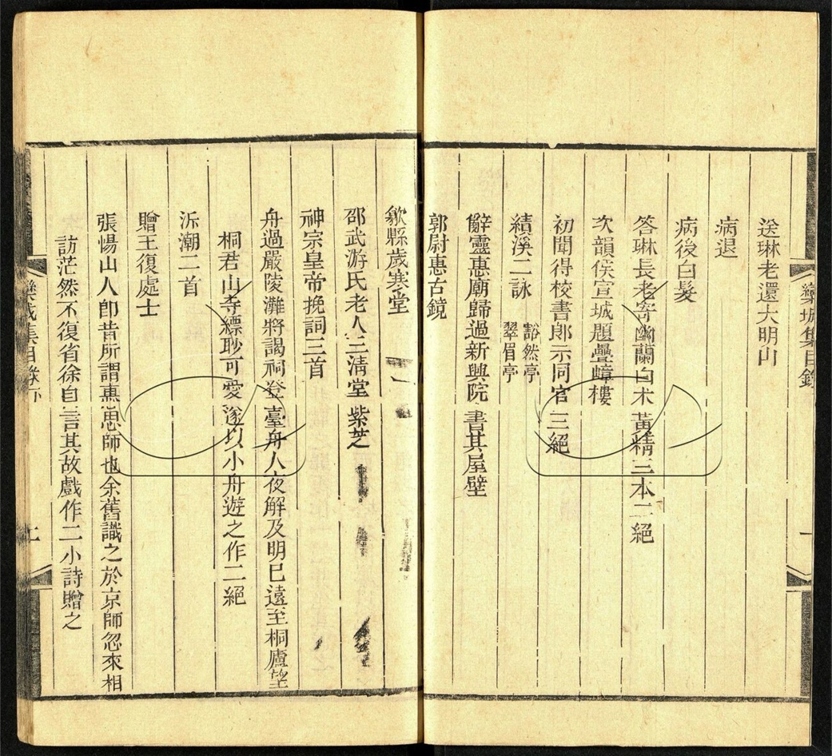 欒城集目錄
送琳老還大明山
病退
病後白髮
答琳長老寄幽蘭白朮黃精三本二絕
次韻侯宣城題疊嶂樓
初聞得校書郎示同官三絕
績溪二詠
豁然亭
翠眉亭
辭靈惠廟歸過新興院書其屋壁
郭尉惠古鏡
歙縣歲寒堂
邵武游氏老人三清堂紫芝
神宗皇帝挽詞三首
舟過嚴陵灘將謁祠登臺舟人夜解及明巳遠至桐廬望
桐君山寺縹眇可愛遂以小舟遊之作二絕
泝潮二首
贈王復處士
張惕山人卽昔所謂惠思師也余舊識之於京師忽來相
訪茫然不復省徐自言其故戲作二小詩贈之
欒城集目錄